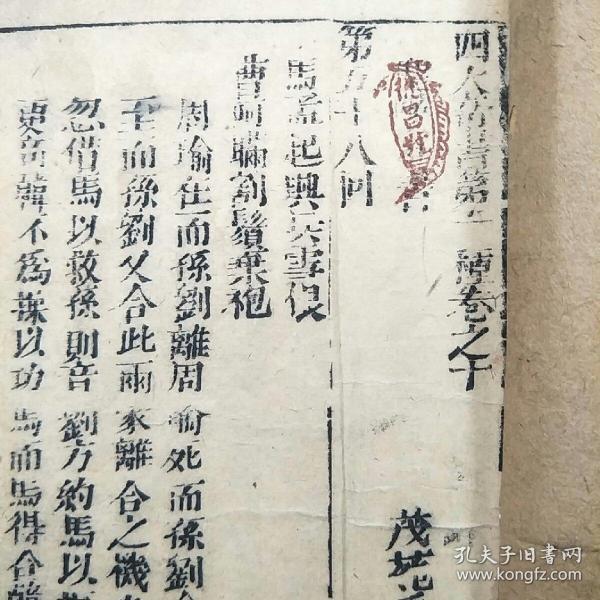 四大奇書第一種卷之十
茂苑
第五十八回
馬孟起興兵雪恨
曹阿瞞割鬚棄袍
周瑜在而孫劉離周瑜死而孫劉合
至而孫劉又合此兩家離合之機
忽借馬以救孫則奇劉方約馬以
更奇韓不為操以功馬而馬得合韓
孔夫子旧书网
www.kongfz.com